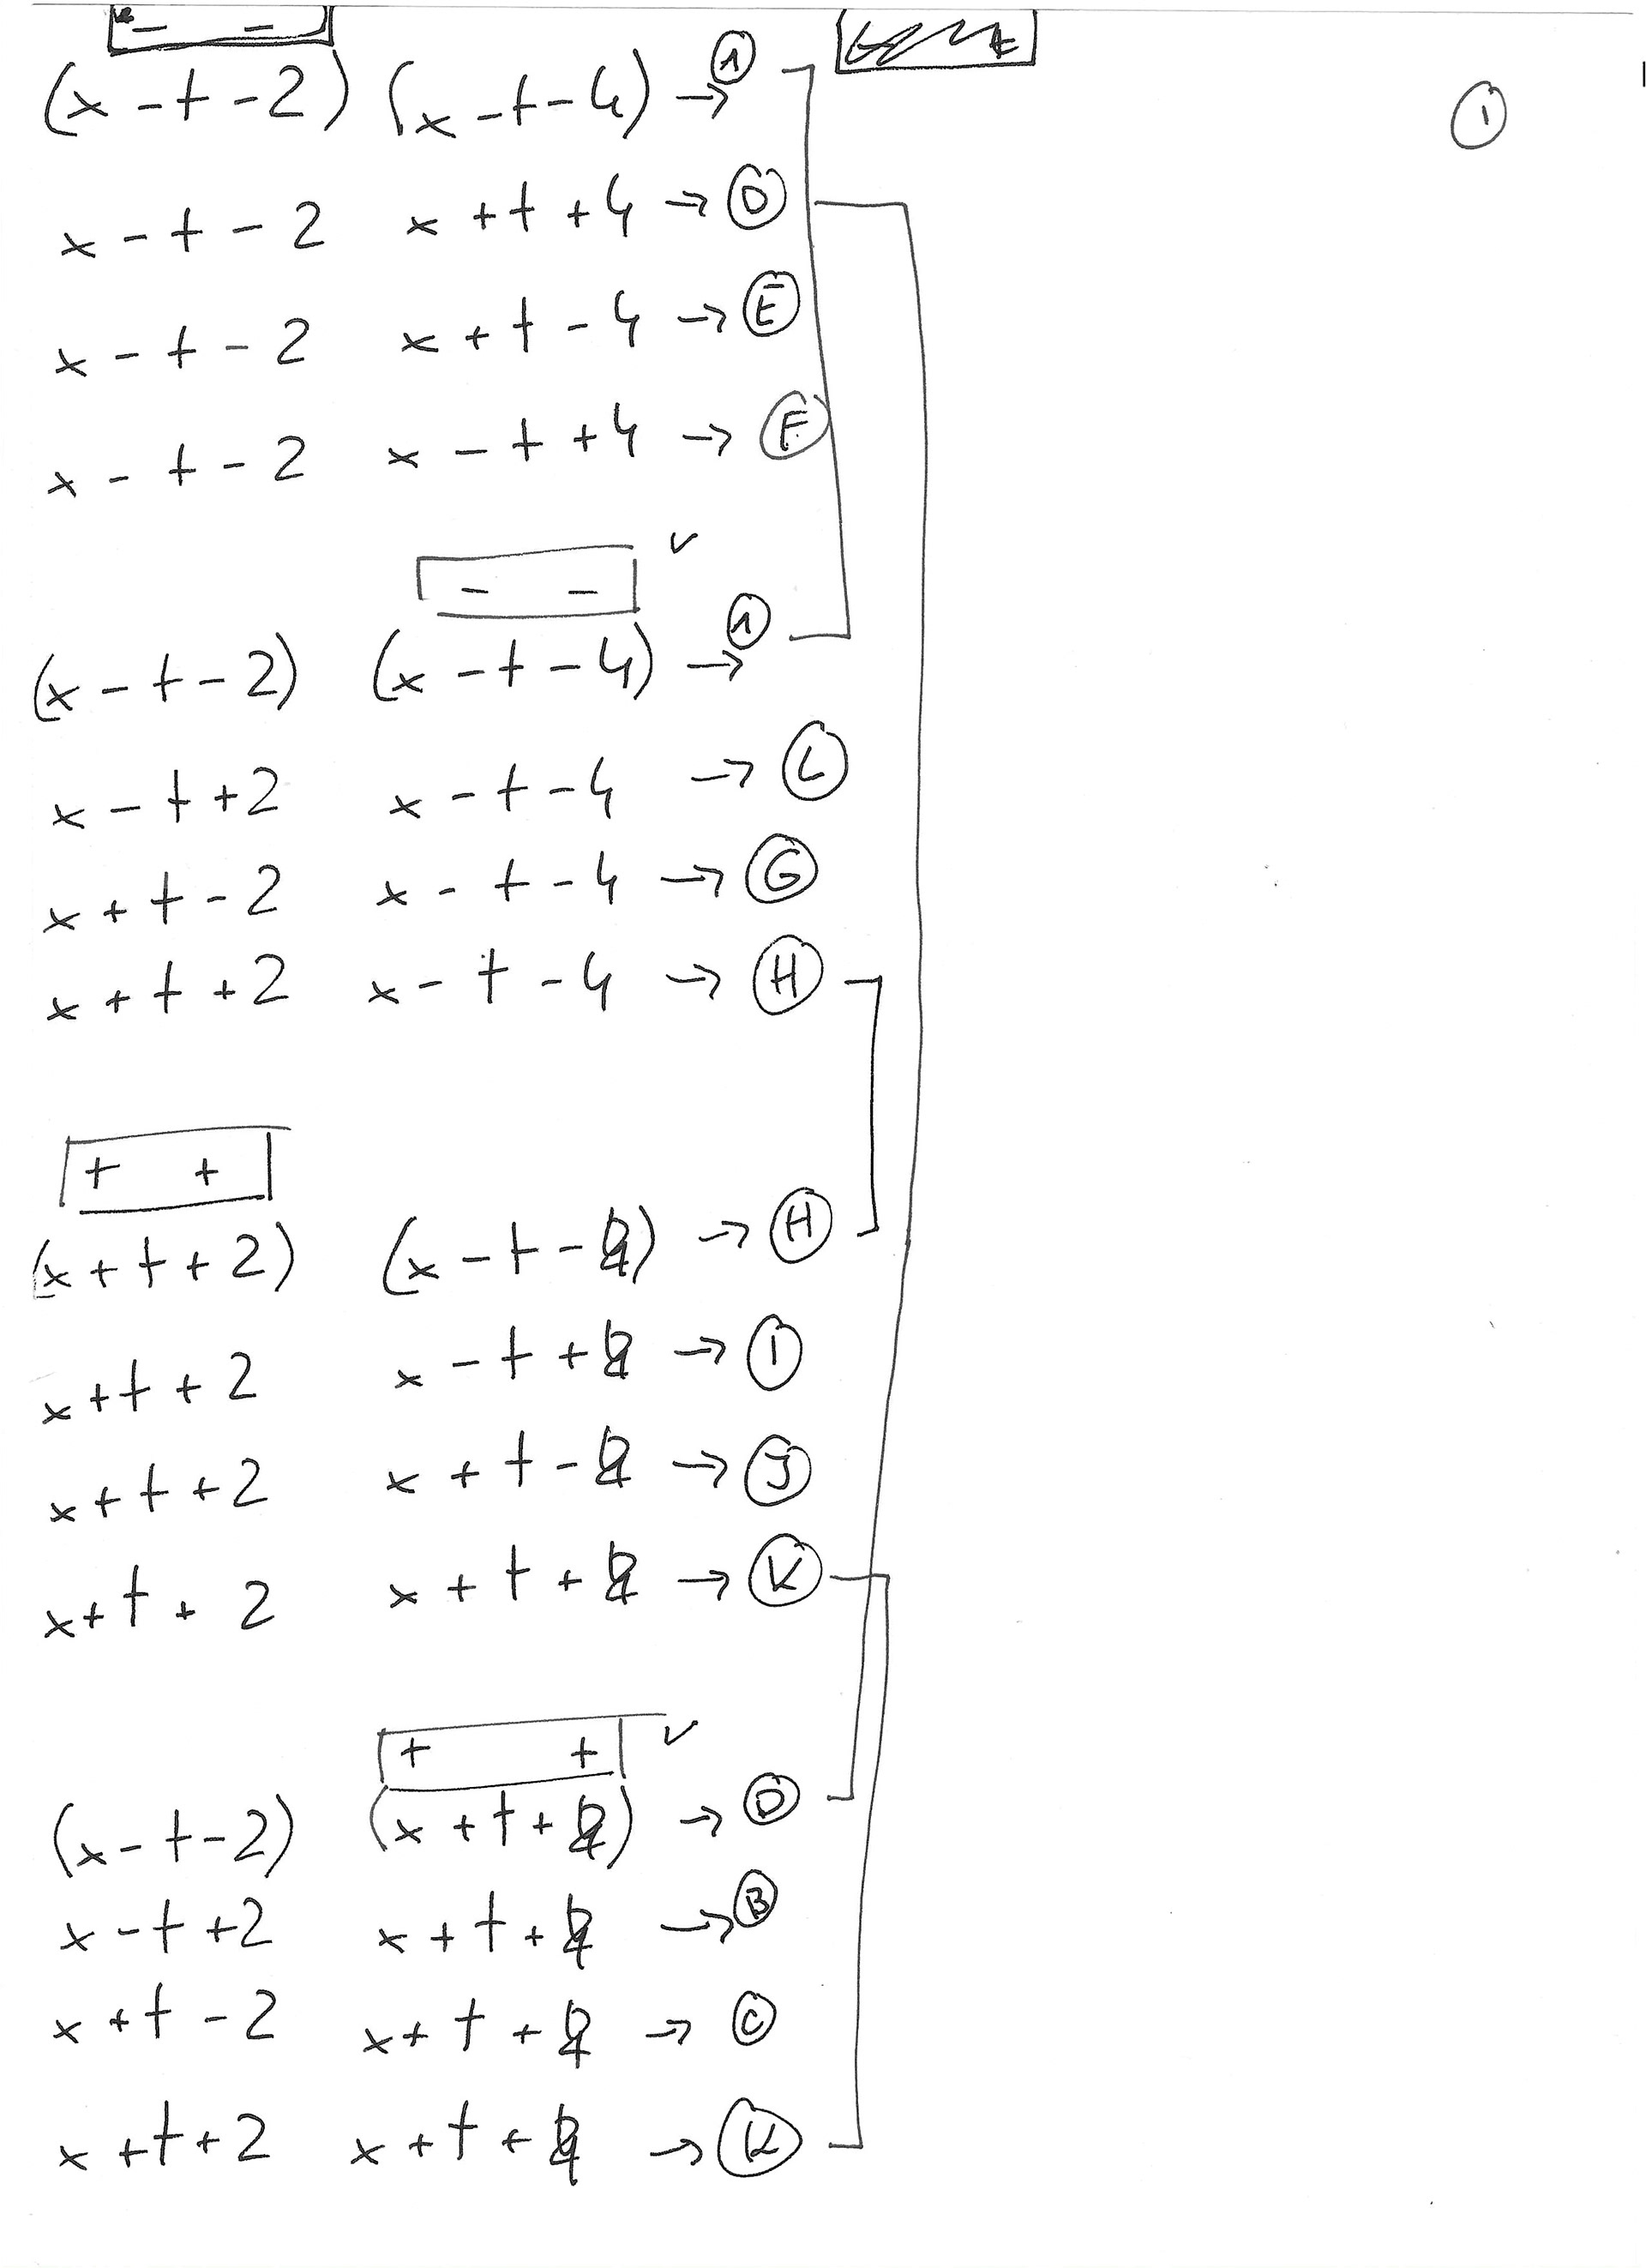 - -
(x - t - 2) (x - t - 4) → 1
1
x - t - 2 x + t + 4 → D
x - t - 2 x + t - 4 → E
x - t - 2 x - t + 4 → F
- - v
(x - t - 2) (x - t - 4) → 1
x - t + 2 x - t - 4 → L
x + t - 2 x - t - 4 → G
x + t + 2 x - t - 4 → H
+ +
(x + t + 2) (x - t - 4) → H
x + t + 2 x - t + 4 → I
x + t + 2 x + t - 4 → J
x + t + 2 x + t + 4 → K
+ + v
(x - t - 2) (x + t + 4) → D
x - t + 2 x + t + 4 → B
x + t - 2 x + t + 4 → C
x + t + 2 x + t + 4 → K